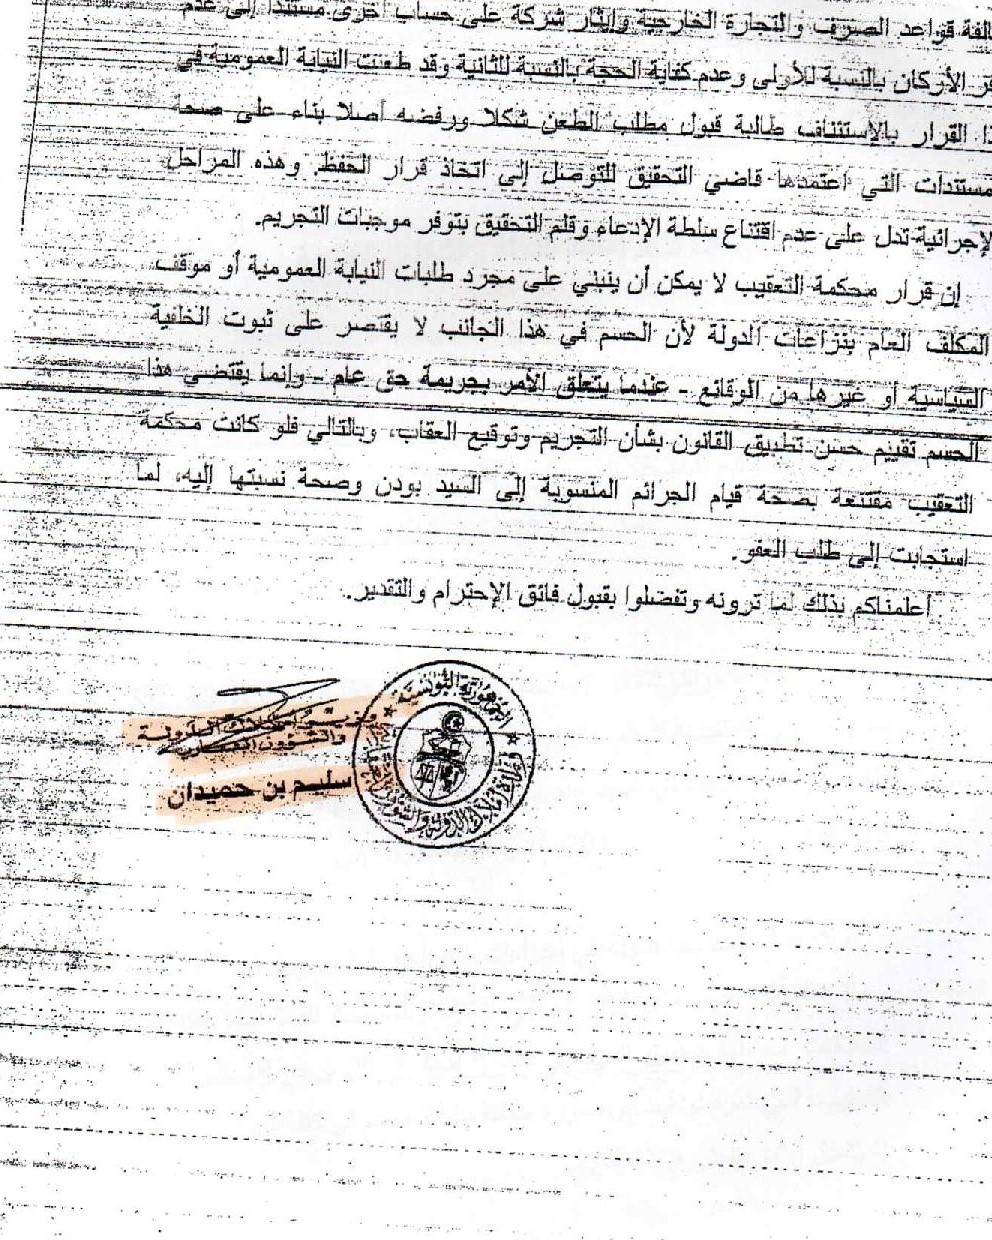 الفة قواعد الصرف والتجارة الخارجية وإيثار شركة على حساب أخرى مستندا إلى عدم
فر الأركان بالنسبة للأولى وعدم كفاية الحجة بالنسبة للثانية وقد طعنت النيابة العمومية في
ذا القرار بالإستئناف طالبة قبول مطلب الطعن شكلا ورفضه أصلا بناء على صحة
مستندات التي اعتمدها قاضي التحقيق للتوصل إلى اتخاذ قرار الحفظ. وهذه المراحل
لإجرائية تدل على عدم اقتناع سلطة الإدعاء وقلم التحقيق بتوفر موجبات التجريم.
إن قرار محكمة التعقيب لا يمكن أن ينبني على مجرد طلبات النيابة العمومية أو موقف
المكلف العام بنزاعات الدولة لأن الحسم في هذا الجانب لا يقتصر على ثبوت الخلفية
السياسية أو غيرها من الوقائع - عندما يتعلق الأمر بجريمة حق عام - وإنما يقتضي هذا
الحسم تقييم حسن تطبيق القانون بشأن التجريم وتوقيع العقاب، وبالتالي فلو كانت محكمة
التعقيب مقتنعة بصحة قيام الجرائم المنسوبة إلى السيد بودن وصحة نسبتها إليه، لما
استجابت إلى طلب العفو.
أعلمناكم بذلك لما ترونه وتفضلوا بقبول فائق الإحترام والتقدير.
وزير أملاك الدولة
والشؤون العقارية
سليم بن حميدان
الجمهورية التونسية
وزارة أملاك الدولة والشؤون العقارية